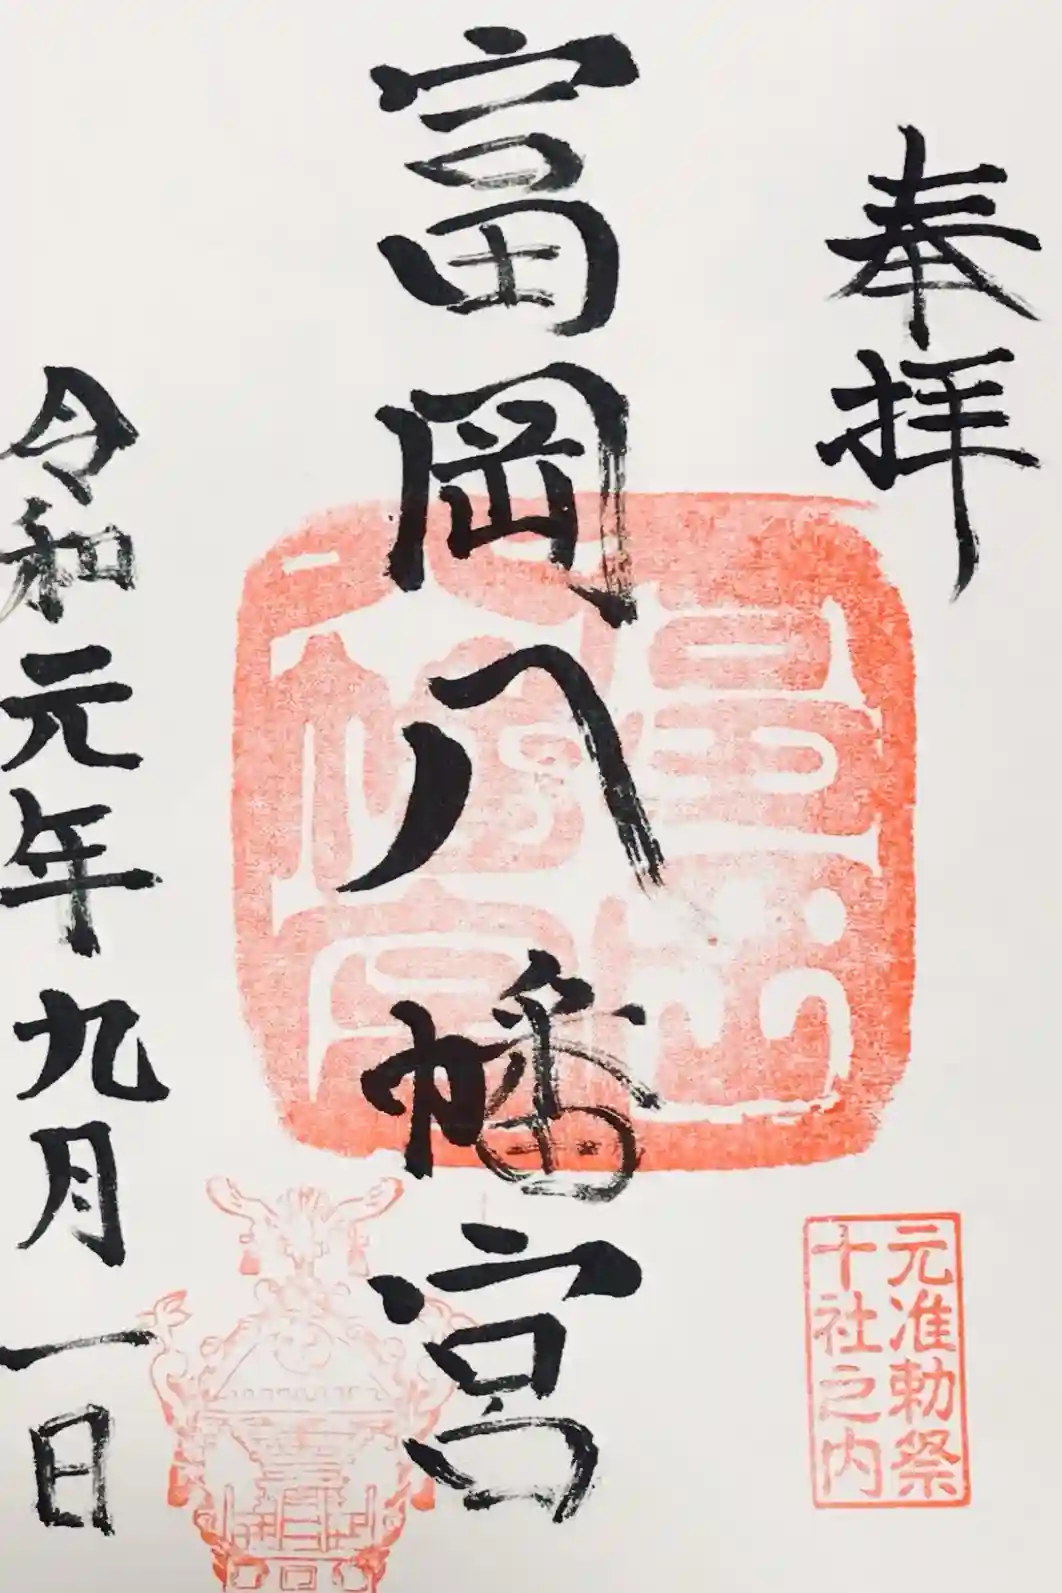 奉拝
富岡八幡宮
令和元年九月一日
元准勅祭
十社之内